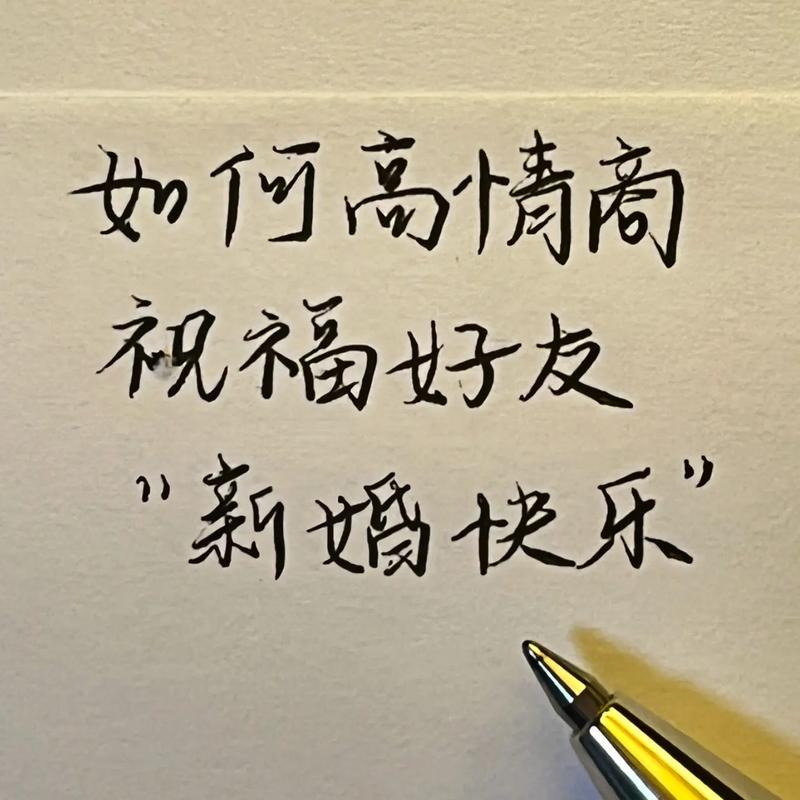 如何高情商
祝福好友
"新婚快乐"